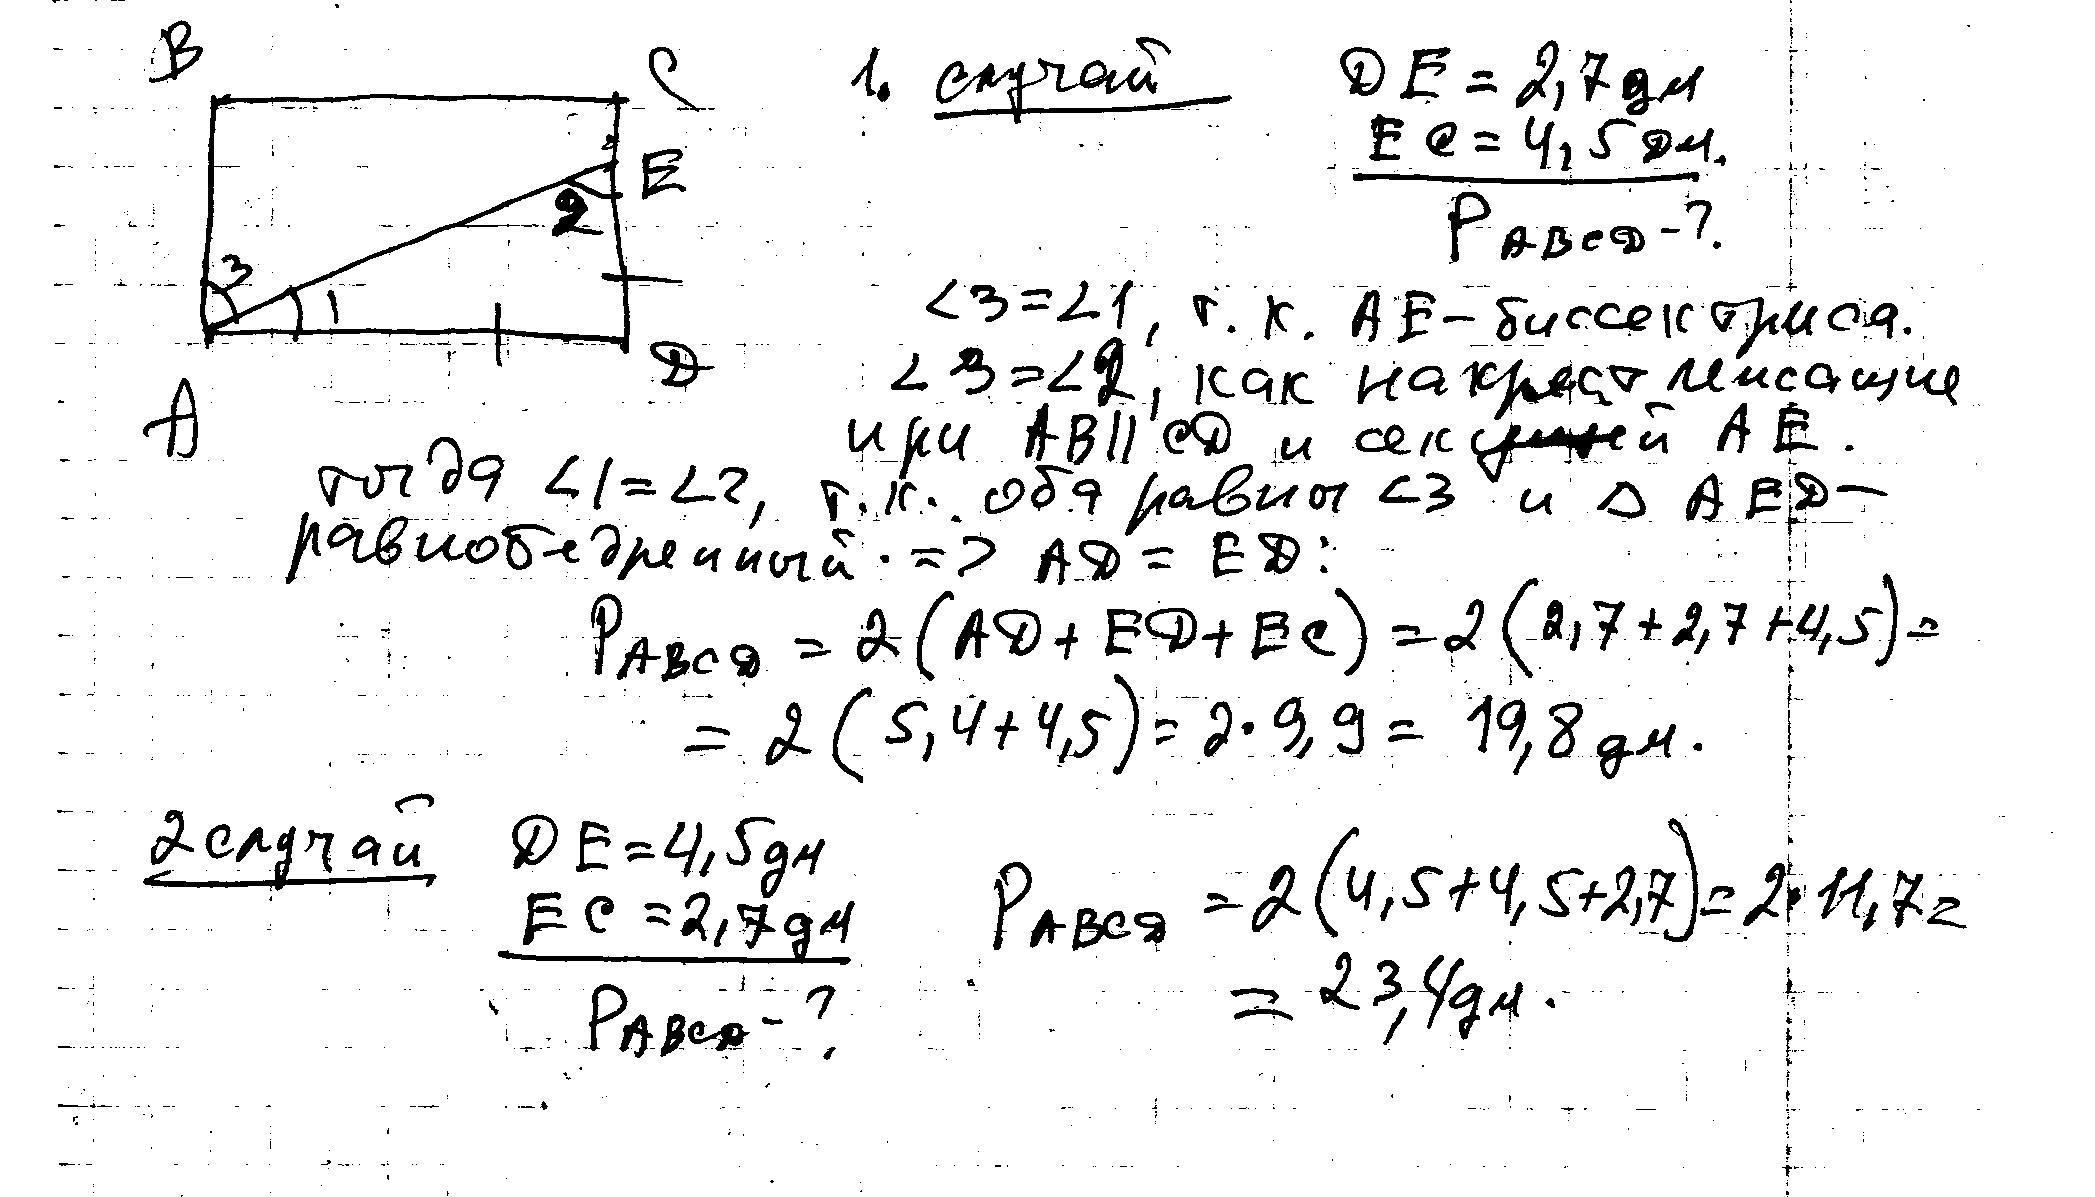 B
C
E
2
3
1
D
A
1. случай
DE = 2,7 дм
EC = 4,5 дм.
P ABCD - ?
∠3 = ∠1, т. к. AE - биссектриса.
∠3 = ∠2, как накрест лежащие
при AB || CD и секущей AE.
тогда ∠1 = ∠2, т.к. оба равны ∠3 и △ AED -
равнобедренный. => AD = ED:
P ABCD = 2 ( AD + ED + EC ) = 2 ( 2,7 + 2,7 + 4,5 ) =
= 2 ( 5,4 + 4,5 ) = 2 · 9,9 = 19,8 дм.
2 случай
DE = 4,5 дм
EC = 2,7 дм
P ABCD - ?
P ABCD = 2 ( 4,5 + 4,5 + 2,7 ) = 2 · 11,7 =
= 23,4 дм.